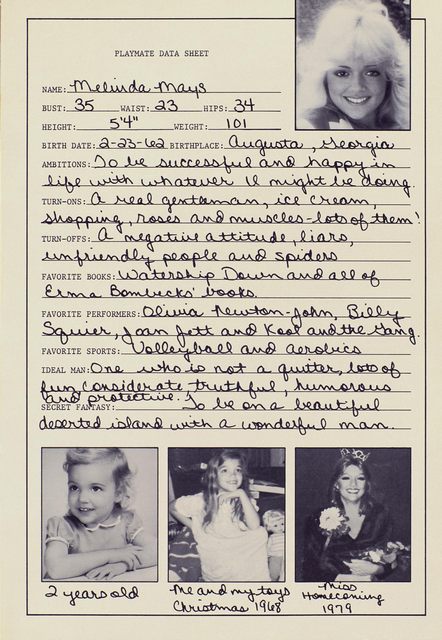 PLAYMATE DATA SHEET
NAME: Melinda Mays
BUST: 35 WAIST: 23 HIPS: 34
HEIGHT: 5'4" WEIGHT: 101
BIRTH DATE: 2-23-62 BIRTHPLACE: Augusta, Georgia
AMBITIONS: To be successful and happy in
life with whatever I might be doing.
TURN-ONS: A real gentleman, ice cream,
shopping, roses and muscles-lots of them!
TURN-OFFS: A negative attitude, liars,
unfriendly people and spiders
FAVORITE BOOKS: Watership Down and all of
Erma Bombecks' books.
FAVORITE PERFORMERS: Olivia Newton-John, Billy
Squier, Joan Jett and Kool and the Gang.
FAVORITE SPORTS: Volleyball and aerobics
IDEAL MAN: One who is not a quitter, lots of
fun, considerate, truthful, humorous
and protective.
SECRET FANTASY: To be on a beautiful
deserted island with a wonderful man.
2 years old
Me and my toys
Christmas 1968
Miss
Homecoming
1979